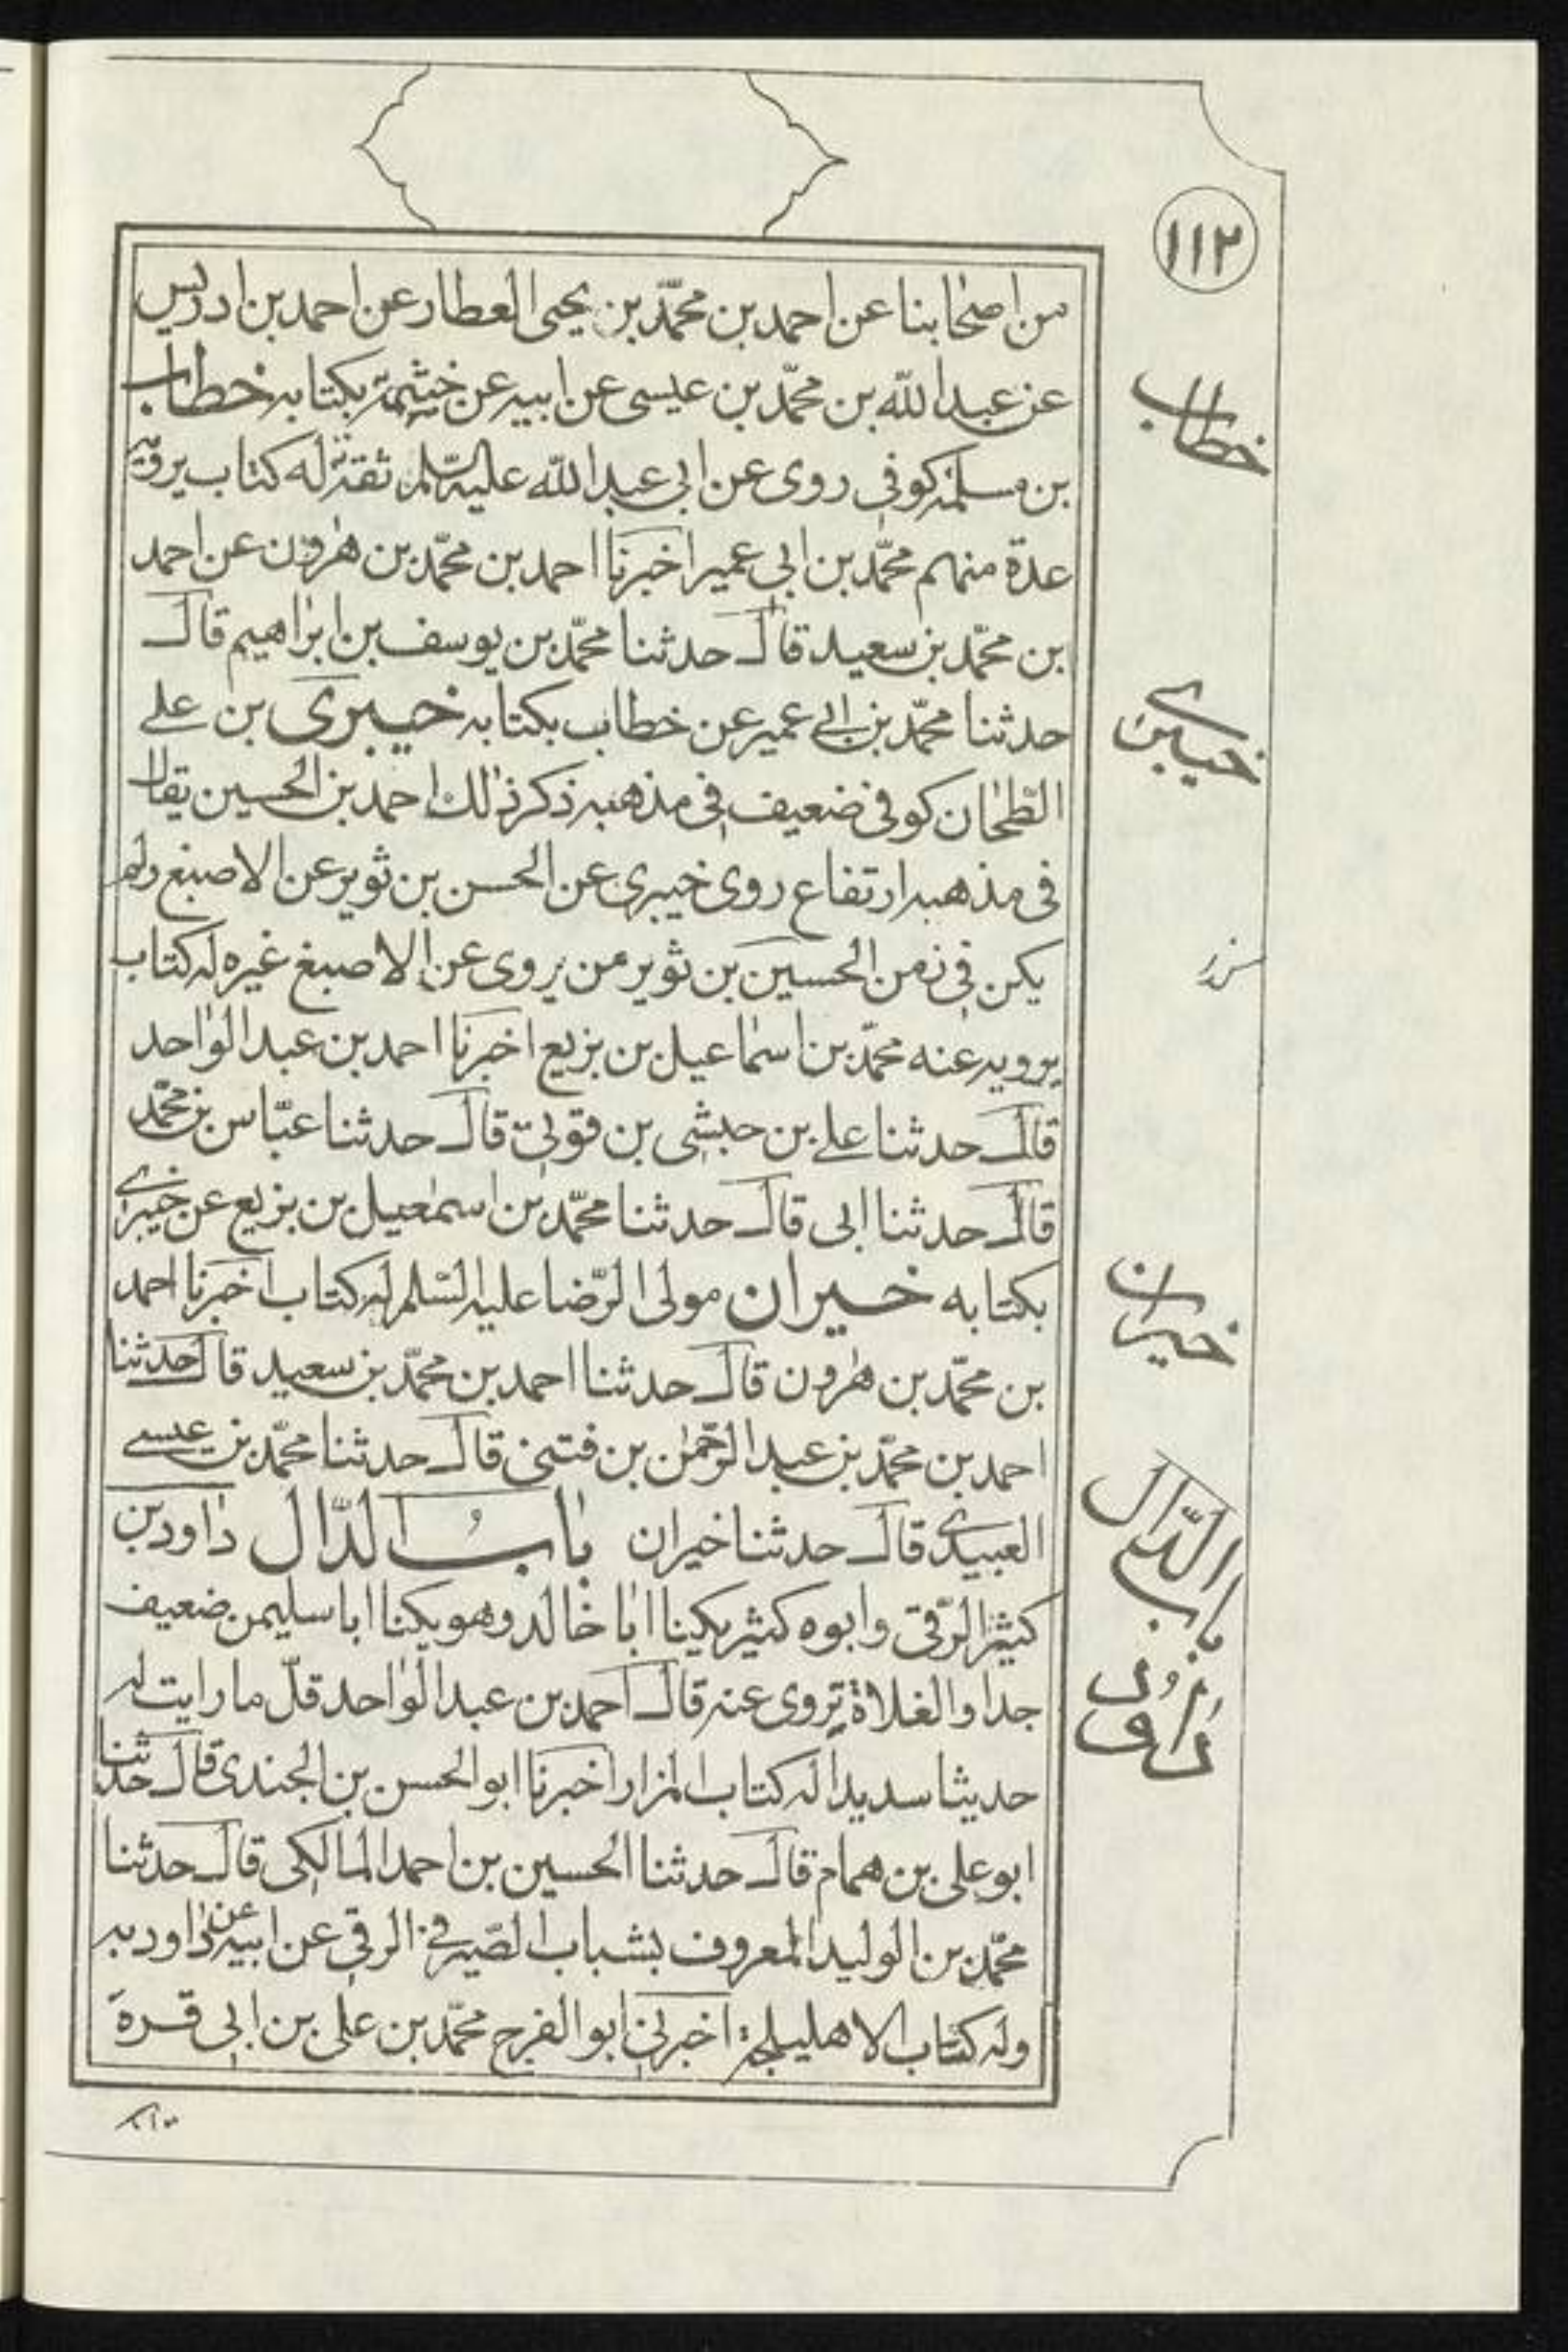 ١١٢
من اصحابنا عن احمد بن محمّد بن يحيى العطار عن احمد بن ادريس
عن عبد الله بن محمّد بن عيسى عن ابيه عن خيثمة بكتابه خطاب
بن مسلمة كوفى روى عن ابى عبد الله عليه السّلم ثقة له كتاب يرويه
عدة منهم محمّد بن ابى عمير اخبرنا احمد بن محمّد بن هرون عن احمد
بن محمّد بن سعيد قال حدثنا محمّد بن يوسف بن ابراهيم قال
حدثنا محمّد بن ابى عمير عن خطاب بكتابه خيبرى بن على
الطحان كوفى ضعيف فى مذهبه ذكر ذلك احمد بن الحسين يقال
فى مذهبه ارتفاع روى خيبرى عن الحسن بن ثوير عن الاصبغ ولم
يكن فى زمن الحسين بن ثوير من يروى عن الاصبغ غيره له كتاب
يرويه عنه محمّد بن اسماعيل بن بزيع اخبرنا احمد بن عبد الواحد
قال حدثنا على بن حبشى بن قونى قال حدثنا عبّاس بن محمّد
قال حدثنا ابى قال حدثنا محمّد بن اسمعيل بن بزيع عن خيبرى
بكتابه خيران مولى الرّضا عليه السّلم له كتاب اخبرنا احمد
بن محمّد بن هرون قال حدثنا احمد بن محمّد بن سعيد قال حدثنا
احمد بن محمّد بن عبد الرّحمن بن فتنى قال حدثنا محمّد بن عيسى
العبيدى قال حدثنا خيران باب الدّال داود بن
كثير الرّقى وابوه كثير يكينا ابا خالد وهو يكنا ابا سليمن ضعيف
جدا والغلاة تروى عنه قال احمد بن عبد الواحد قلّ ما رايت له
حديثا سديدا له كتاب المزار اخبرنا ابو الحسن بن الجندى قال حدثنا
ابو على بن همام قال حدثنا الحسين بن احمد المالكى قال حدثنا
محمّد بن الوليد المعروف بشباب الصّيرفى الرقى عن ابيه عن داود به
وله كتاب الاهليلجة اخبرنى ابو الفرج محمّد بن على بن ابى قرة
خطاب
خيبرى
خيران
باب الدّال
داود